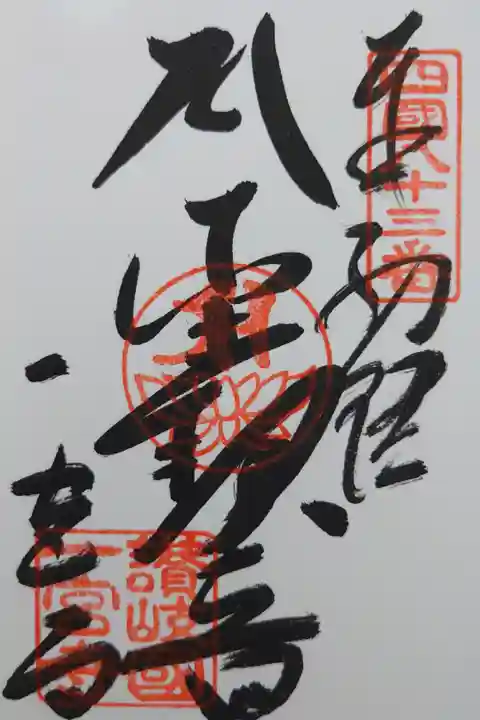 四國八十三番
奉納経
聖観音
一宮寺
讃岐國
一宮寺